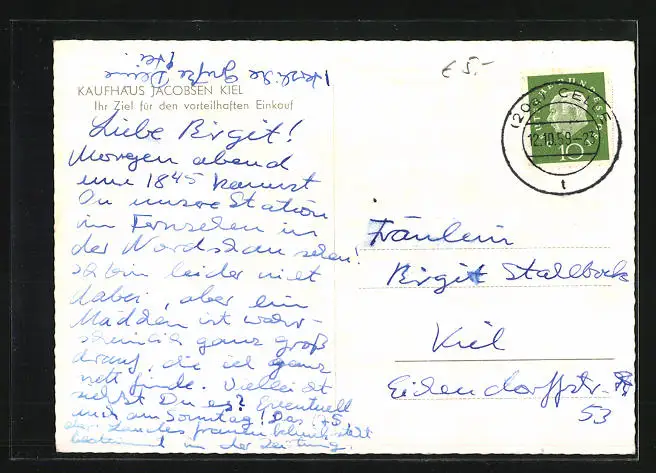 Herzliche Grüße Deine
KAUFHAUS JACOBSEN KIEL
Ihr Ziel für den vorteilhaften Einkauf
Liebe Birgit!
Morgen abend
um 18 45 kannst
Du unsre Station
im Fernsehen in
der Nordschau sehen!
Ich bin leider nicht
dabei, aber ein
Mädchen ist wahr-
scheinlich ganz groß
drauf, die ich ganz
nett finde. Vielleicht
siehst Du es? Eventuell
auch am Sonntag! Das
der Landesfrauenklinik steht
bestimmt in der Zeitung.
£ 5.-
DEUTSCHE BUNDESPOST
10
(20a) CELLE
12.10.59-23
t
Fräulein
Birgit Stallbock
Kiel
Eichendorffstr.
53